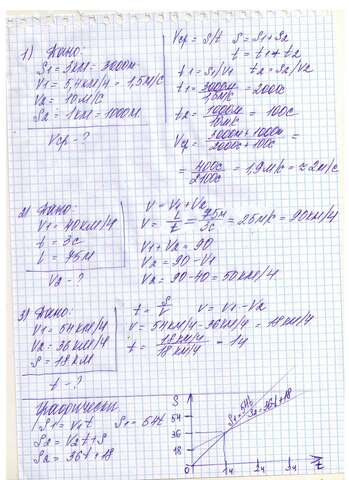 1) Дано:
S1 = 3км = 3000м
V1 = 5,4км/ч = 1,5м/с
V2 = 10м/с
S2 = 1км = 1000м
Vср - ?
Vср = S/t S = S1+S2
t = t1+t2
t1 = S1/V1 t2 = S2/V2
t1 = 3000м/1,5м/с = 2000с
t2 = 1000м/10м/с = 100с
Vср = 3000м+1000м/2000с+100с =
= 400с/2100с = 1,9м/с = ≈2м/с
2) Дано:
V1 = 40км/ч
t = 3с
L = 75м
V2 - ?
V = V1+V2
V = L/t = 75м/3с = 25м/с = 90км/ч
V1+V2 = 90
V2 = 90-V1
V2 = 90-40 = 50км/ч
3) Дано:
V1 = 54км/ч
V2 = 36км/ч
S = 18км
t - ?
t = S/V V = V1-V2
V = 54км/ч-36км/ч = 18км/ч
t = 18км/ч/18км/ч = 1ч
Графически
S1 = V1t S1 = 54t
S2 = V2t+S
S2 = 36t+18
S
54
36
18
0
1ч 2ч 3ч t
S1=54t
S2=36t+18